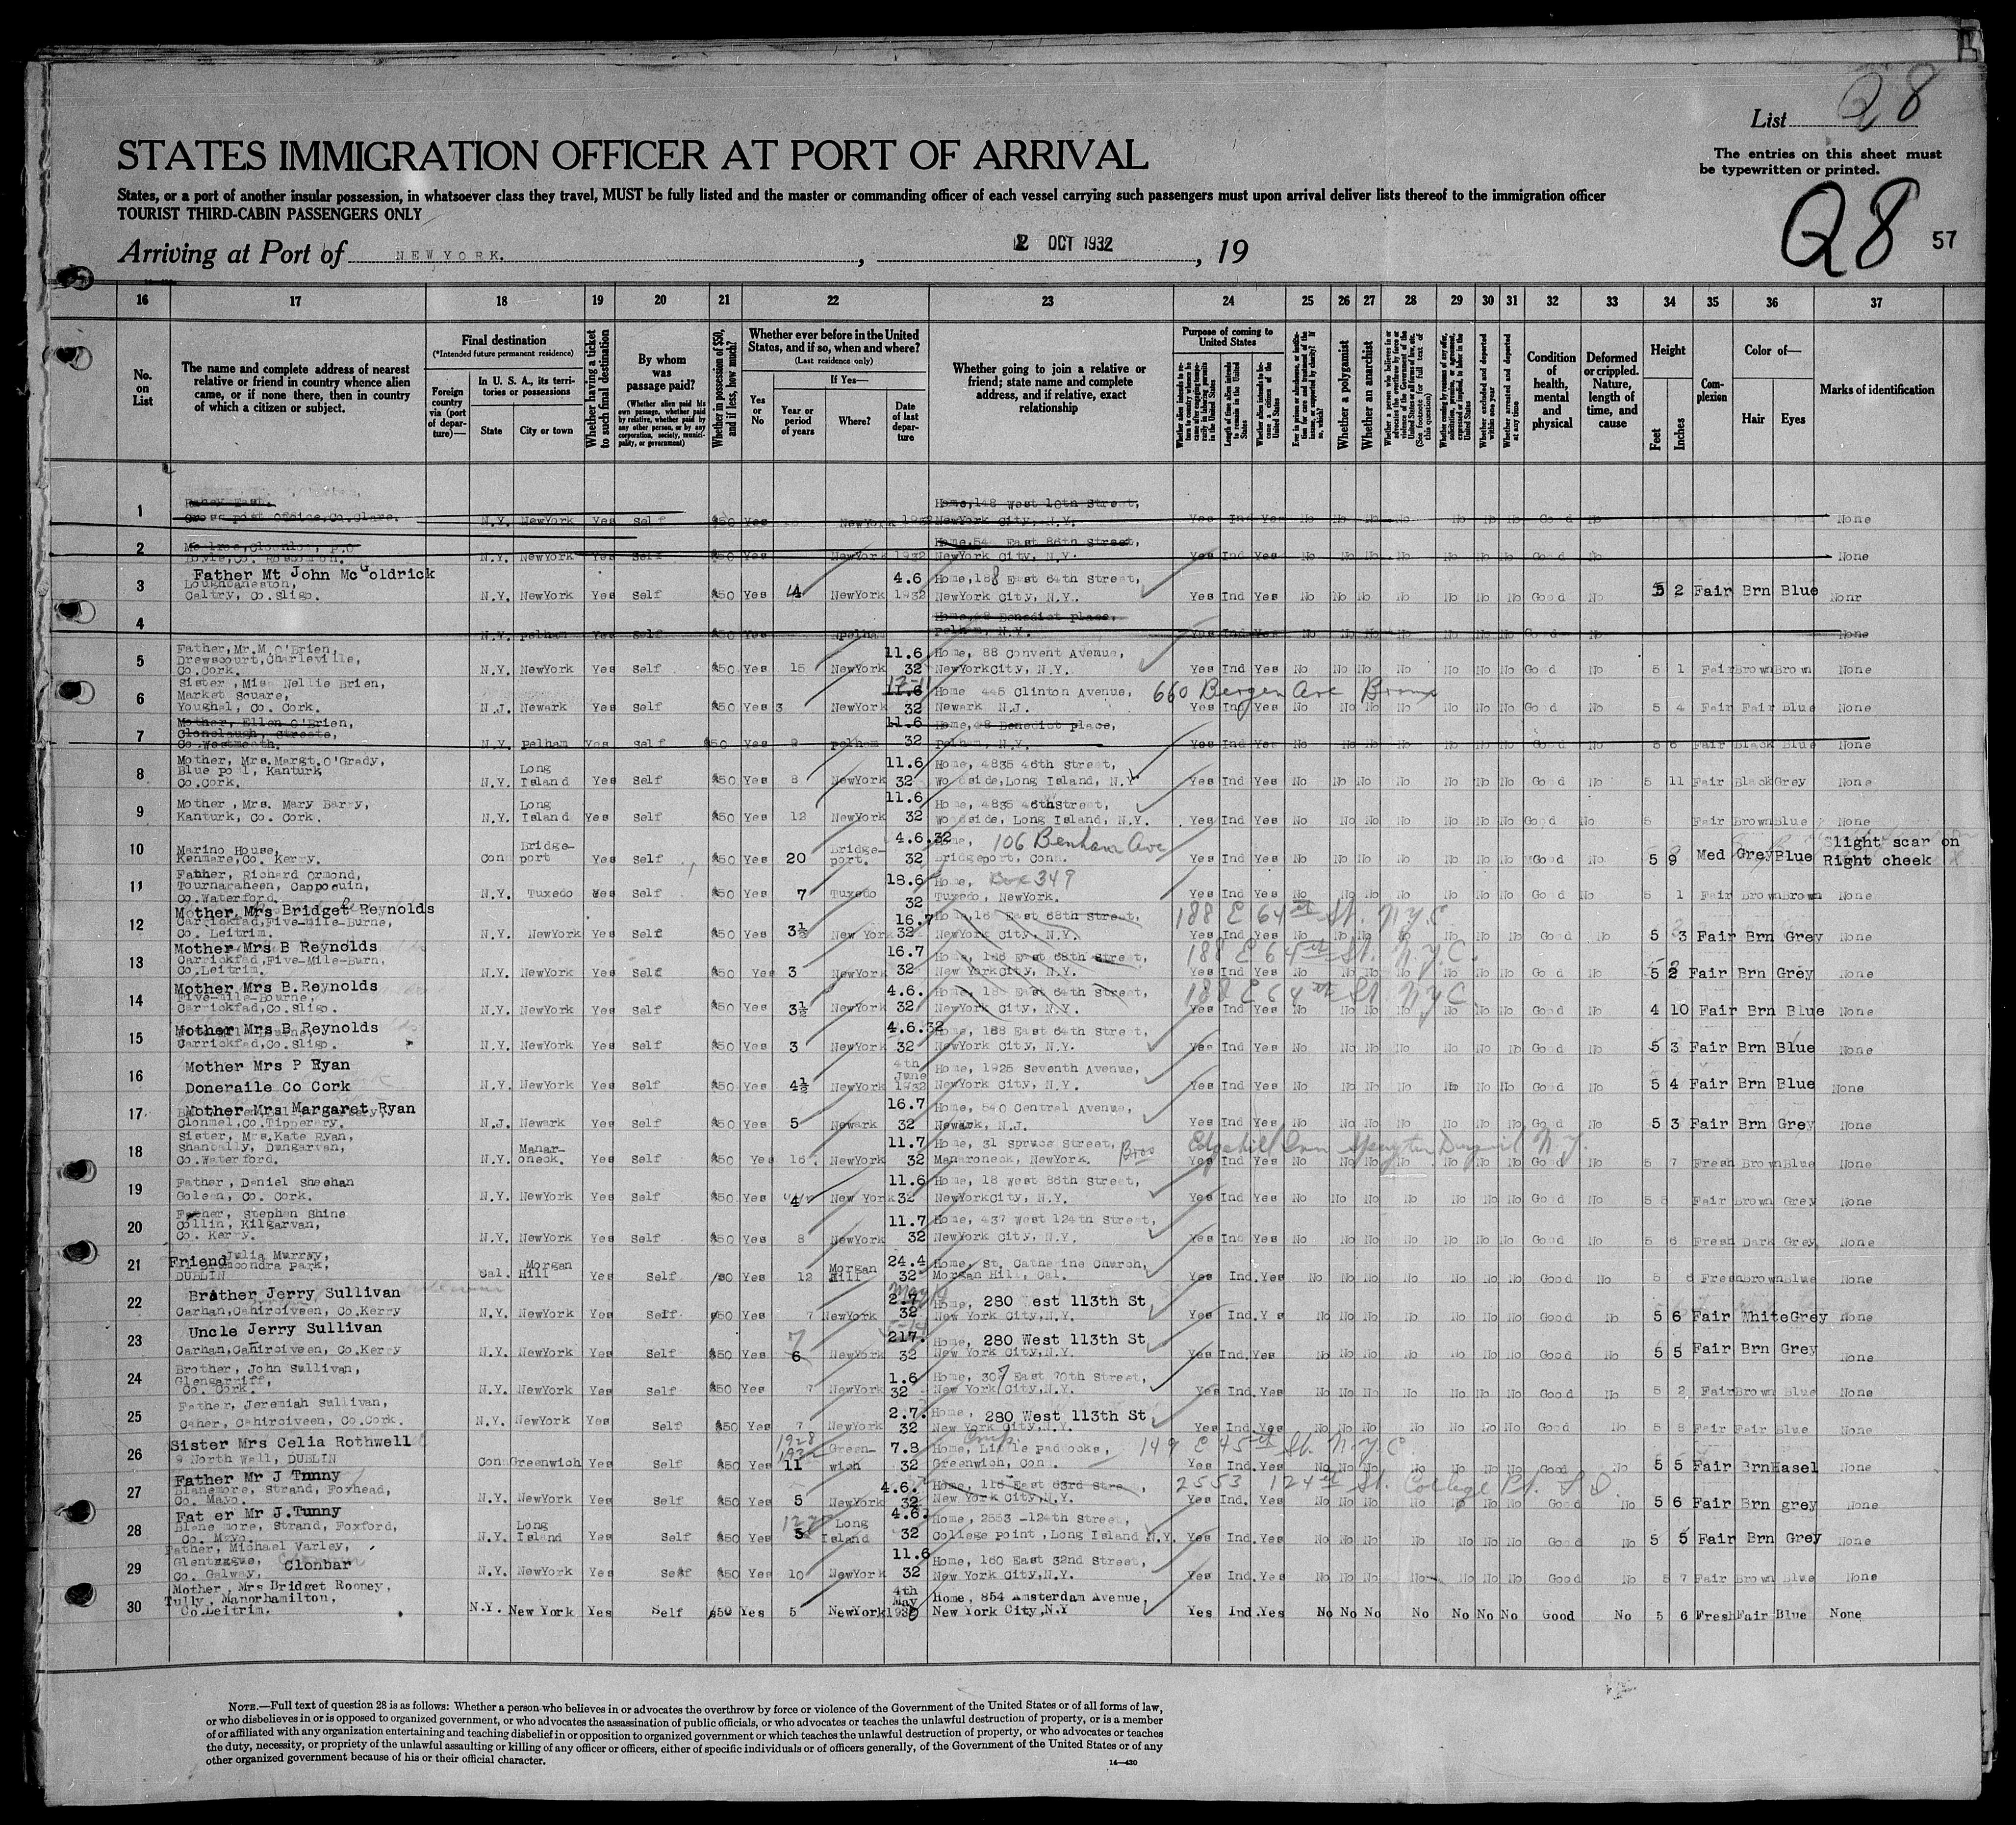 List Q8
STATES IMMIGRATION OFFICER AT PORT OF ARRIVAL
The entries on this sheet must
be typewritten or printed.
States, or a port of another insular possession, in whatsoever class they travel, MUST be fully listed and the master or commanding officer of each vessel carrying such passengers must upon arrival deliver lists thereof to the immigration officer
TOURIST THIRD-CABIN PASSENGERS ONLY
Q8 57
Arriving at Port of NEW YORK. , 2 OCT 1932 , 19
16 17 18 19 20 21 22 23 24 25 26 27 28 29 30 31 32 33 34 35 36 37
No. on List
The name and complete address of nearest relative or friend in country whence alien came, or if none there, then in country of which a citizen or subject.
Final destination
(*Intended future permanent residence)
Foreign country via (port of departure)—
In U. S. A., its territories or possessions
State City or town
Whether having a ticket to such final destination
By whom was passage paid?
(Whether alien paid his own passage, whether paid by relative, whether paid by any other person, or by any corporation, society, municipality, or government)
Whether in possession of $50, and if less, how much?
Whether ever before in the United States, and if so, when and where?
(Last residence only)
Yes or No
If Yes—
Year or period of years
Where?
Date of last departure
Whether going to join a relative or friend; state name and complete address, and if relative, exact relationship
Purpose of coming to United States
Length of time alien intends to remain in the United States
Whether alien intends to become a citizen of the United States
Whether a polygamist
Whether an anarchist
(See footnote for full text of this question)
Whether excluded and deported within one year
Whether arrested and deported at any time
Condition of health, mental and physical
Deformed or crippled. Nature, length of time, and cause
Height
Feet Inches
Complexion
Color of—
Hair Eyes
Marks of identification
1 Cross post office, Co. Clare. N.Y. NewYork Yes Self $50 Yes NewYork 1932 Home, 148 West 10th Street, NewYork City, N.Y. Yes Ind Yes No No No No No No No Good No None
2 N.Y. NewYork Yes Self $50 Yes NewYork 1932 Home, 54 East 86th Street, NewYork City, N.Y. Yes Ind Yes No No No No No No No Good No None
3 Father Mt John McGoldrick
Caltry, Co.Sligo. N.Y. NewYork Yes Self $50 Yes 4 NewYork 4.6 1932 Home, 188 East 64th Street, NewYork City, N.Y. Yes Ind Yes No No No No No No No Good No 5 2 Fair Brn Blue Nonr
4 N.Y. Pelham Yes Self $50 Yes Pelham Home, 48 Benedict place, Pelham, N.Y. Yes Ind Yes No No No No No No No Good No None
5 Father, Mr. M. O'Brien,
Drewscourt, Charleville,
Co. Cork. N.Y. NewYork Yes Self $50 Yes 15 NewYork 11.6 32 Home, 88 Convent Avenue, NewYorkCity, N.Y. Yes Ind Yes No No No No No No No Good No 5 1 Fair Brown Brown None
6 Sister, Miss Nellie Brien,
Market Square,
Youghal, Co. Cork. N.J. Newark Yes Self $50 Yes 3 NewYork 17-11 11.6 32 Home 445 Clinton Avenue, Newark N.J. 660 Bergen Ave Bronx Yes Ind Yes No No No No No No No Good No 5 4 Fair Fair Blue None
7 Mother, Ellen O'Brien,
Clonclaugh, Streete,
Co. Westmeath. N.Y. Pelham Yes Self $50 Yes 9 Pelham 11.6 32 Home, 48 Benedict place, Pelham, N.Y. Yes Ind Yes No No No No No No No Good No 5 6 Fair Black Blue None
8 Mother, Mrs. Margt. O'Grady,
Blue pool, Kanturk
Co. Cork. N.Y. Long Island Yes Self $50 Yes 8 NewYork 11.6 32 Home, 4835 46th Street, Woodside, Long Island, N.Y. Yes Ind Yes No No No No No No No Good No 5 11 Fair Black Grey None
9 Mother, Mrs. Mary Barry,
Kanturk, Co. Cork. N.Y. Long Island Yes Self $50 Yes 12 NewYork 11.6 32 Home, 4835 46thStreet, Woodside, Long Island, N.Y. Yes Ind Yes No No No No No No No Good No 5 Fair Brown Blue None
10 Marino House,
Kenmare, Co. Kerry. Con Bridge-port Yes Self $50 Yes 20 Bridge-port. 4.6.32 32 Home, 106 Benham Ave Bridgeport, Conn. Yes Ind Yes No No No No No No No Good No 5 9 Med Grey Blue Slight scar on Right cheek
11 Father, Richard Ormond,
Tournagaheen, Cappoquin,
Co. Waterford. N.Y. Tuxedo Yes Self $50 Yes 7 Tuxedo 18.6 32 Home, Box 349 Tuxedo, NewYork. Yes Ind Yes No No No No No No No Good No 5 1 Fair Brown Brown None
12 Mother, Mrs Bridget Reynolds
Carrickfad, Five-Mile-Burne,
Co. Leitrim. N.Y. NewYork Yes Self $50 Yes 3½ New York 16.7 32 East 68th Street, NewYork City, N.Y. 188 E 64th St. N.Y.C Yes Ind Yes No No No No No No No Good No 5 3 Fair Brn Grey None
13 Mother Mrs B Reynolds
Carrickfad, Five-Mile-Burn,
Co. Leitrim. N.Y. NewYork Yes Self $50 Yes 3 NewYork 16.7 32 East 68th Street, New YorkCity, N.Y. 188 E 64th St. N.Y.C. Yes Ind Yes No No No No No No No Good No 5 2 Fair Brn Grey None
14 Mother Mrs B. Reynolds
Five-mile-Bourne,
Carrickfad, Co. Sligo. N.Y. NewYork Yes Self $50 Yes 3½ NewYork 4.6. 32 Home, 188 East 64th Street, NewYork City, N.Y. 188 E 64th St. N Y C Yes Ind Yes No No No No No No No Good No 4 10 Fair Brn Blue None
15 Mother Mrs B Reynolds
Carrickfad, Co. Sligo. N.Y. NewYork Yes Self $50 Yes 3 NewYork 4.6.32 32 Home, 188 East 64th Street, NewYork City, N.Y. Yes Ind Yes No No No No No No No Good No 5 3 Fair Brn Blue None
16 Mother Mrs P Ryan
Doneraile Co Cork N.Y. NewYork Yes Self $50 Yes 4½ NewYork 4th June 1932 Home, 1925 Seventh Avenue, NewYork City, N.Y. Yes Ind Yes No No No No No No No Good No 5 4 Fair Brn Blue None
17 Mother Mrs Margaret Ryan
Clonmel, Co. Tipperary. N.J. Newark Yes Self $50 Yes 5 Newark 16.7 32 Home, 540 Central Avenue, Newark, N.J. Yes Ind Yes No No No No No No No Good No 5 3 Fair Brn Grey None
18 Sister, Mrs. Kate Ryan,
Shanbally, Dungarvan,
Co. Waterford. N.Y. Manaroneck. Yes Self $50 Yes 16 NewYork 11.7 32 Home, 31 Spruce Street, Manaroneck, NewYork. Edgehill Inn Spuyten Duyvil N.Y. Yes Ind Yes No No No No No No No Good No 5 7 Fresh Brown Blue None
19 Father, Daniel Sheehan
Goleen, Co. Cork. N.Y. NewYork Yes Self $50 Yes 4 New York 11.6 32 Home, 18 West 86th Street, NewYorkcity, N.Y. Yes Ind Yes No No No No No No No Good No 5 8 Fair Brown Grey None
20 Father, Stephen Shine
Collin, Kilgarvan,
Co. Kerry. N.Y. NewYork Yes Self $50 Yes 8 NewYork 11.7 32 Home, 437 West 124th Street, NewYork City, N.Y. Yes Ind Yes No No No No No No No Good No 5 6 Fresh Dark Grey None
21 Friend Julia Murray,
Drumcondra Park,
DUBLIN Cal. Morgan Hill Yes Self $50 Yes 12 Morgan Hill 24.4 32 Home, St. Catherine Church, Morgan Hill, Cal. Yes Ind. Yes No No No No No No No Good No 5 6 Fresh Brown Blue None
22 Brother Jerry Sullivan
Carhan, Cahirciveen, Co. Kerry N.Y. NewYork Yes Self $50 Yes 7 NewYork 2.7 32 Home, 280 West 113th St New York City, N.Y. Yes Ind. Yes No No No No No No No Good No 5 6 Fair White Grey None
23 Uncle Jerry Sullivan
Carhan, Cahirciveen, Co. Kerry N.Y. NewYork Yes Self $50 Yes 7 6 NewYork 217. 32 Home, 280 West 113th St New York City, N.Y. Yes Ind. Yes No No No No No No No Good No 5 5 Fair Brn Grey None
24 Brother, John Sullivan,
Glengarriff,
Co. Cork. N.Y. NewYork Yes Self $50 Yes 7 NewYork 1.6 32 Home, 307 East 70th Street, New York City, N.Y. Yes Ind. Yes No No No No No No No Good No 5 2 Fair Brown Blue None
25 Father, Jeremiah Sullivan,
Caher, Cahirciveen, Co. Cork. N.Y. NewYork Yes Self $50 Yes 7 NewYork 2.7. 32 Home, 280 West 113th St New York City, N.Y. Yes Ind. Yes No No No No No No No Good No 5 8 Fair Fair Blue None
26 Sister Mrs Celia Rothwell
9 North Wall, DUBLIN Con Greenwich Yes Self $50 Yes 1928 11 Green-wich 7.8 32 Home, Little Paddocks, Greenwich, Con. 149 E 45th St. N.Y.C Yes Ind. Yes No No No No No No No Good No 5 5 Fair Brn Hasel None
27 Father Mr J Tunny
Blanemore, Strand, Foxhead,
Co. Mayo. N.Y. NewYork Yes Self $50 Yes 5 NewYork 4.6. 32 Home, 116 East 63rd Street, New York City, N.Y. 2553 124th St. College Pt. Yes Ind. Yes No No No No No No No Good No 5 6 Fair Brn grey None
28 Fat er Mr J. Tunny
Blanemore, Strand, Foxford,
Co. Mayo. N.Y. Long Island Yes Self $50 Yes 5 Long Island 4.6. 32 Home, 2553 -124th Street, College point, Long Island N.Y. Yes Ind. Yes No No No No No No No Good No 5 5 Fair Brn Grey None
29 Father, Michael Varley,
Glentrague, Clonbar
Co. Galway, N.Y. NewYork Yes Self $50 Yes 10 NewYork 11.6 32 Home, 160 East 32nd Street, New York City, N.Y. Yes Ind. Yes No No No No No No No Good No 5 7 Fair Brown Blue None
30 Mother, Mrs Bridget Rooney,
Tully, Manorhamilton,
Co. Leitrim. N.Y. New York Yes Self $50 Yes 5 NewYork 4th May 1930 Home, 854 Amsterdam Avenue, New York City, N.Y Yes Ind. Yes No No No No No No No Good No 5 6 Fresh Fair Blue None
NOTE.—Full text of question 28 is as follows: Whether a person who believes in or advocates the overthrow by force or violence of the Government of the United States or of all forms of law,
or who disbelieves in or is opposed to organized government, or who advocates the assassination of public officials, or who advocates or teaches the unlawful destruction of property, or is a member
of or affiliated with any organization entertaining and teaching disbelief in or opposition to organized government or which teaches the unlawful destruction of property, or who advocates or teaches
the duty, necessity, or propriety of the unlawful assaulting or killing of any officer or officers, either of specific individuals or of officers generally, of the Government of the United States or of any
other organized government because of his or their official character.
14—430